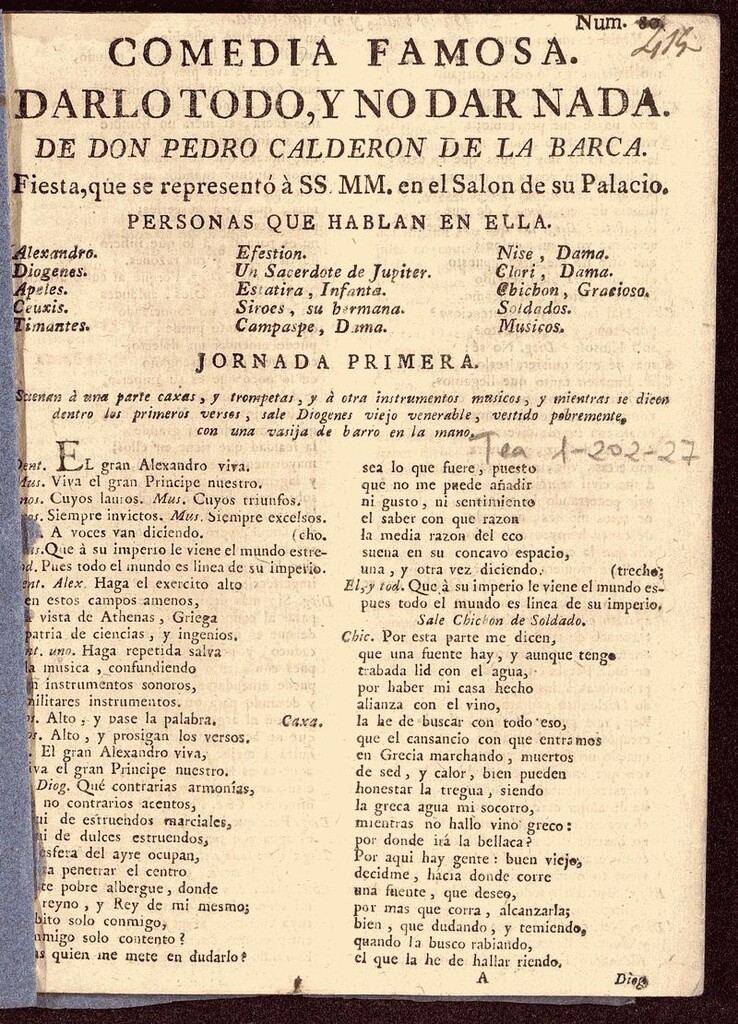 Num. 80.
415
COMEDIA FAMOSA.
DARLO TODO, Y NO DAR NADA.
DE DON PEDRO CALDERON DE LA BARCA.
Fiesta, que se representó à SS. MM. en el Salon de su Palacio.
PERSONAS QUE HABLAN EN ELLA.
Alexandro.
Diogenes.
Apeles.
Ceuxis.
Timantes.
Efestion.
Un Sacerdote de Jupiter.
Estatira, Infanta.
Siroes, su hermana.
Campaspe, Dama.
Nise, Dama.
Clori, Dama.
Chichon, Gracioso.
Soldados.
Musicos.
JORNADA PRIMERA.
Suenan à una parte caxas, y trompetas, y à otra instrumentos musicos, y mientras se dicen
dentro los primeros versos, sale Diogenes viejo venerable, vestido pobremente,
con una vasija de barro en la mano.
Tea 1-202-27
Dent. EL gran Alexandro viva.
Mus. Viva el gran Principe nuestro.
Cuyos lauros. Mus. Cuyos triunfos.
Siempre invictos. Mus. Siempre excelsos.
A voces van diciendo. (cho.
Que à su imperio le viene el mundo estre-
Pues todo el mundo es linea de su imperio.
Alex. Haga el exercito alto
en estos campos amenos,
vista de Athenas, Griega
patria de ciencias, y ingenios.
uno. Haga repetida salva
la musica, confundiendo
instrumentos sonoros,
militares instrumentos.
Alto, y pase la palabra. Caxa.
Alto, y prosigan los versos.
El gran Alexandro viva,
viva el gran Principe nuestro.
Diog. Qué contrarias armonías,
no contrarios acentos,
de estruendos marciales,
de dulces estruendos,
esfera del ayre ocupan,
penetrar el centro
pobre albergue, donde
reyno, y Rey de mi mesmo;
solo conmigo,
solo contento?
quien me mete en dudarlo?
sea lo que fuere, puesto
que no me puede añadir
ni gusto, ni sentimiento
el saber con que razon
la media razon del eco
suena en su concavo espacio,
una, y otra vez diciendo. (trecho;
El, y tod. Que à su imperio le viene el mundo es-
pues todo el mundo es linea de su imperio.
Sale Chichon de Soldado.
Chic. Por esta parte me dicen,
que una fuente hay, y aunque tengo
trabada lid con el agua,
por haber mi casa hecho
alianza con el vino,
la he de buscar con todo eso,
que el cansancio con que entramos
en Grecia marchando, muertos
de sed, y calor, bien pueden
honestar la tregua, siendo
la greca agua mi socorro,
mientras no hallo vino greco:
por donde irá la bellaca?
Por aqui hay gente: buen viejo,
decidme, hacia donde corre
una fuente, que deseo,
por mas que corra, alcanzarla;
bien, que dudando, y temiendo,
quando la busco rabiando,
el que la he de hallar riendo.
A
Diog.